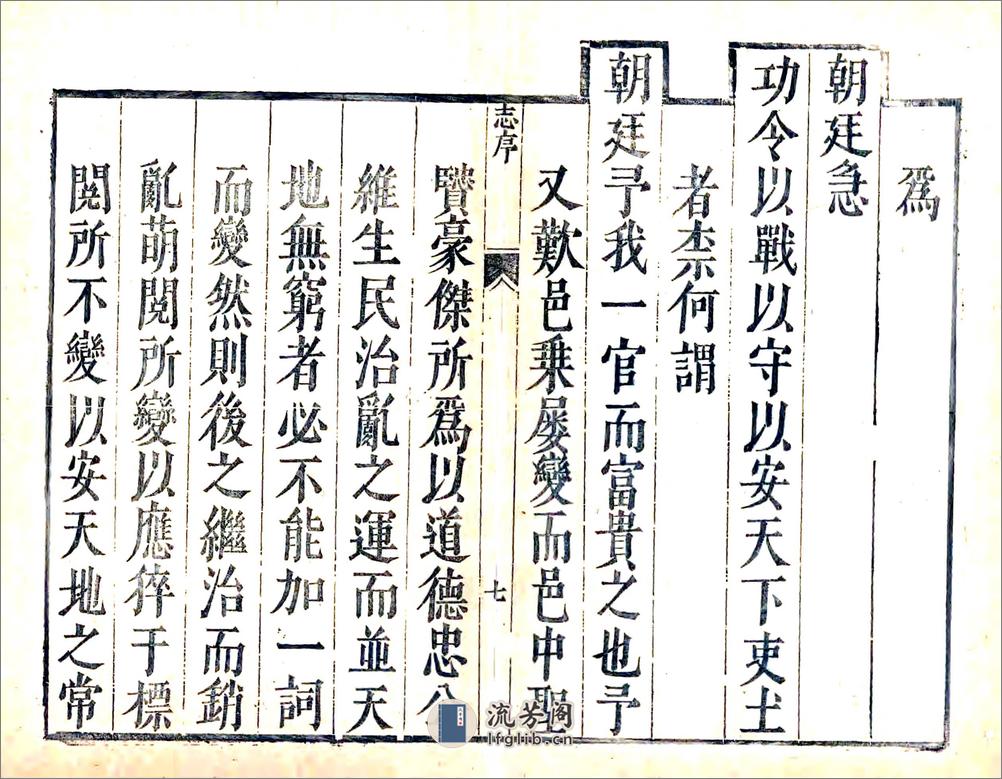 爲
朝廷急
功令以戰以守以安天下吏土
者柰何謂
朝廷予我一官而富貴之也予
又歎邑乘屡變而邑中聖
志序
七
賢豪傑所爲以道德忠公
維生民治亂之運而並天
地無窮者必不能加一詞
而變然則後之繼治而銷
亂萌閱所變以應猝于標
閱所不變以安天地之常
流芳阁
lfglib.cn